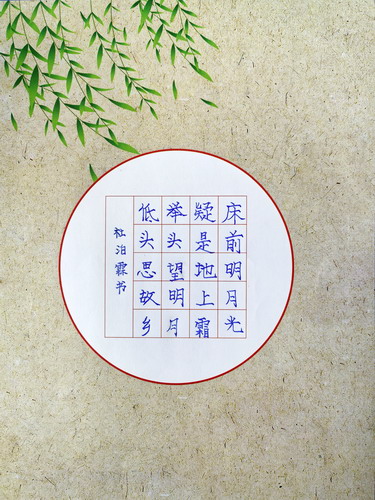 床前明月光
疑是地上霜
举头望明月
低头思故乡
杜泊霖书